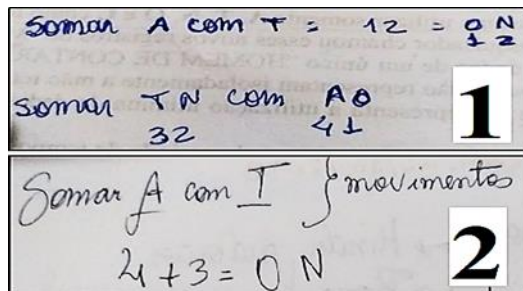 Somar A com T = 12 = O N
1 2
Somar T N com A O
32 41
1
Somar A com I } movimentos
4 + 3 = O N
2